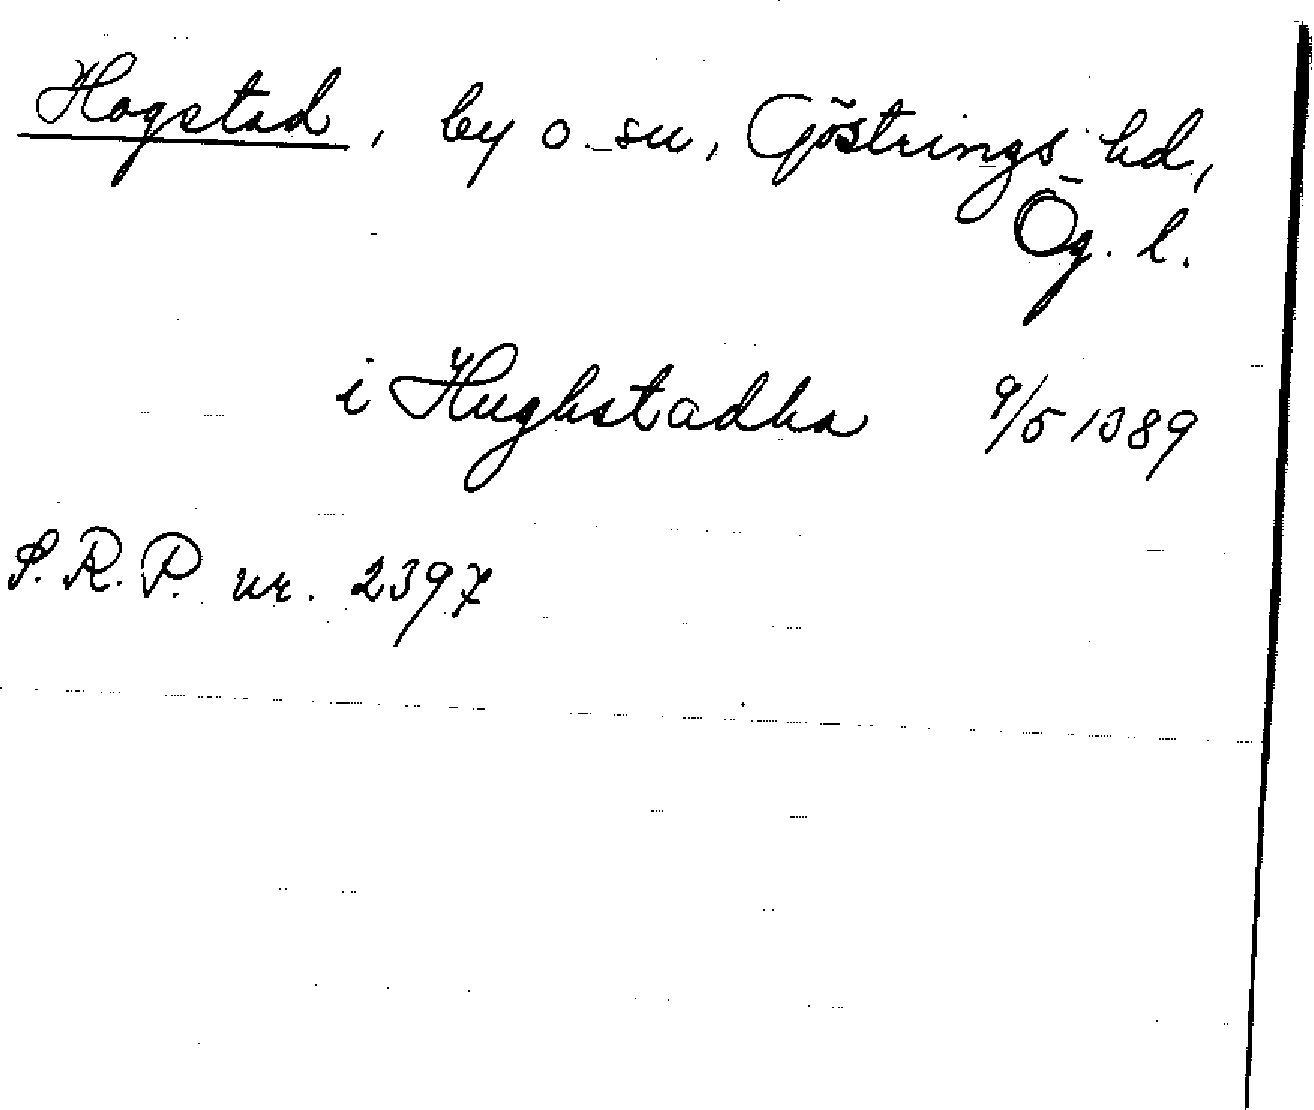 Hogstad, by o. sn, Göstrings hd,
Ög. l.
i Hughstadha 9/5 1389
S.R.P. nr. 2397